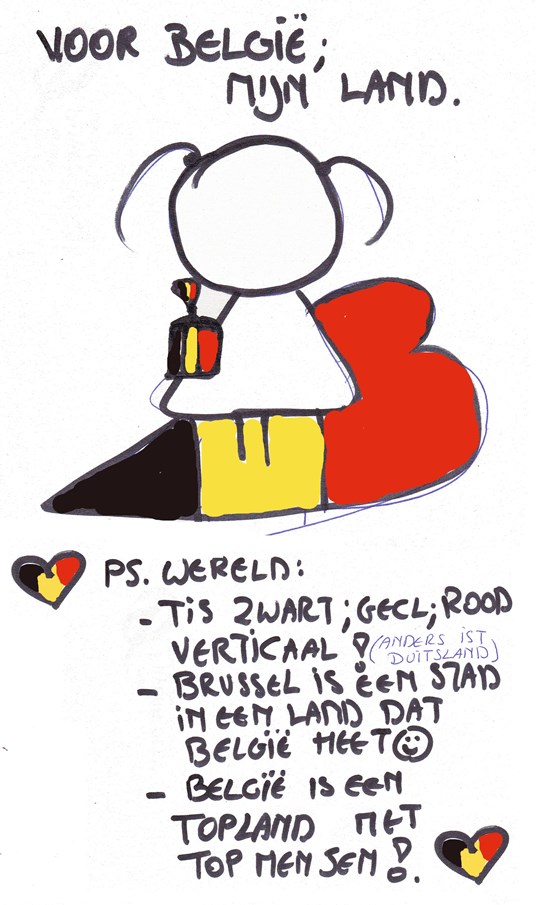 VOOR BELGIË;
MIJN LAND.
PS. WERELD:
- TIS ZWART; GEEL; ROOD
VERTICAAL! (ANDERS IST
DUITSLAND)
- BRUSSEL IS EEN STAD
IN EEN LAND DAT
BELGIË HEET ☺
- BELGÏE IS EEN
TOPLAND MET
TOP MENSEN!.